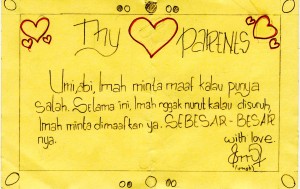 Thy PARENTS
Umi, Abi, Imah minta maaf kalau punya
salah. Selama ini, Imah nggak nurut kalau disuruh,
Imah minta dimaafkan ya. SEBESAR-BESAR
nya.
with love.